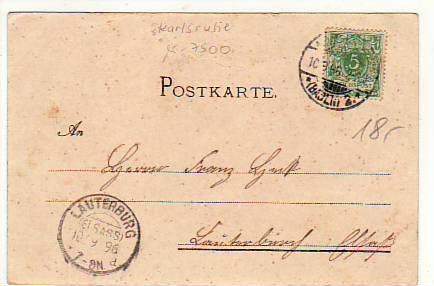 Karlsruhe
K-7500
10 9 96
5
POSTKARTE.
An
18,-
Herrn Franz
Lauterburg Elsaß
LAUTERBURG
(ELSASS)
10/9 96
7-8N.